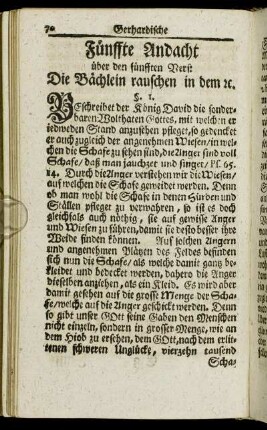 70 Gerhardische
Fünffte Andacht
über den fünfften Verß
Die Bächlein rauschen in dem ꝛc.
§. 1.
Beschreibet der König David die sonder-
baren Wolthaten Gottes, mit welchen er
iedweden Stand anzusehen pfleget, so gedencket
er auch zugleich der angenehmen Wiesen/ in wel-
chen die Schafe zu sehen sind, die Anger sind voll
Schafe/ daß man jauchzet und singet/ Ps. 65.
14. Durch die Anger verstehen wir die Wiesen/
auf welchen die Schafe geweidet werden. Denn
ob man wohl die Schafe in denen Hürden und
Ställen pfleget zu verwahren, so ist es doch
gleichfals auch nöthig, sie auf gewisse Anger
und Wiesen zu führen, damit sie desto besser ihre
Weide finden können. Auf solchen Angern
und angenehmen Plätzen des Feldes befinden
sich nun die Schafe/ als welche damit gantz be-
kleidet und bedecket werden, dahero die Anger
dieselben anziehen, als ein Kleid. Es wird aber
damit gesehen auf die grosse Menge der Scha-
fe/ welche auf die Anger geschickt werden. Denn
so gibt unser GOtt seine Gaben den Menschen
nicht einzeln, sondern in grosser Menge, wie an
dem Hiob zu ersehen, dem GOtt, nach dem erlit-
tenen schweren Unglücke, vierzehn tausend
Scha-